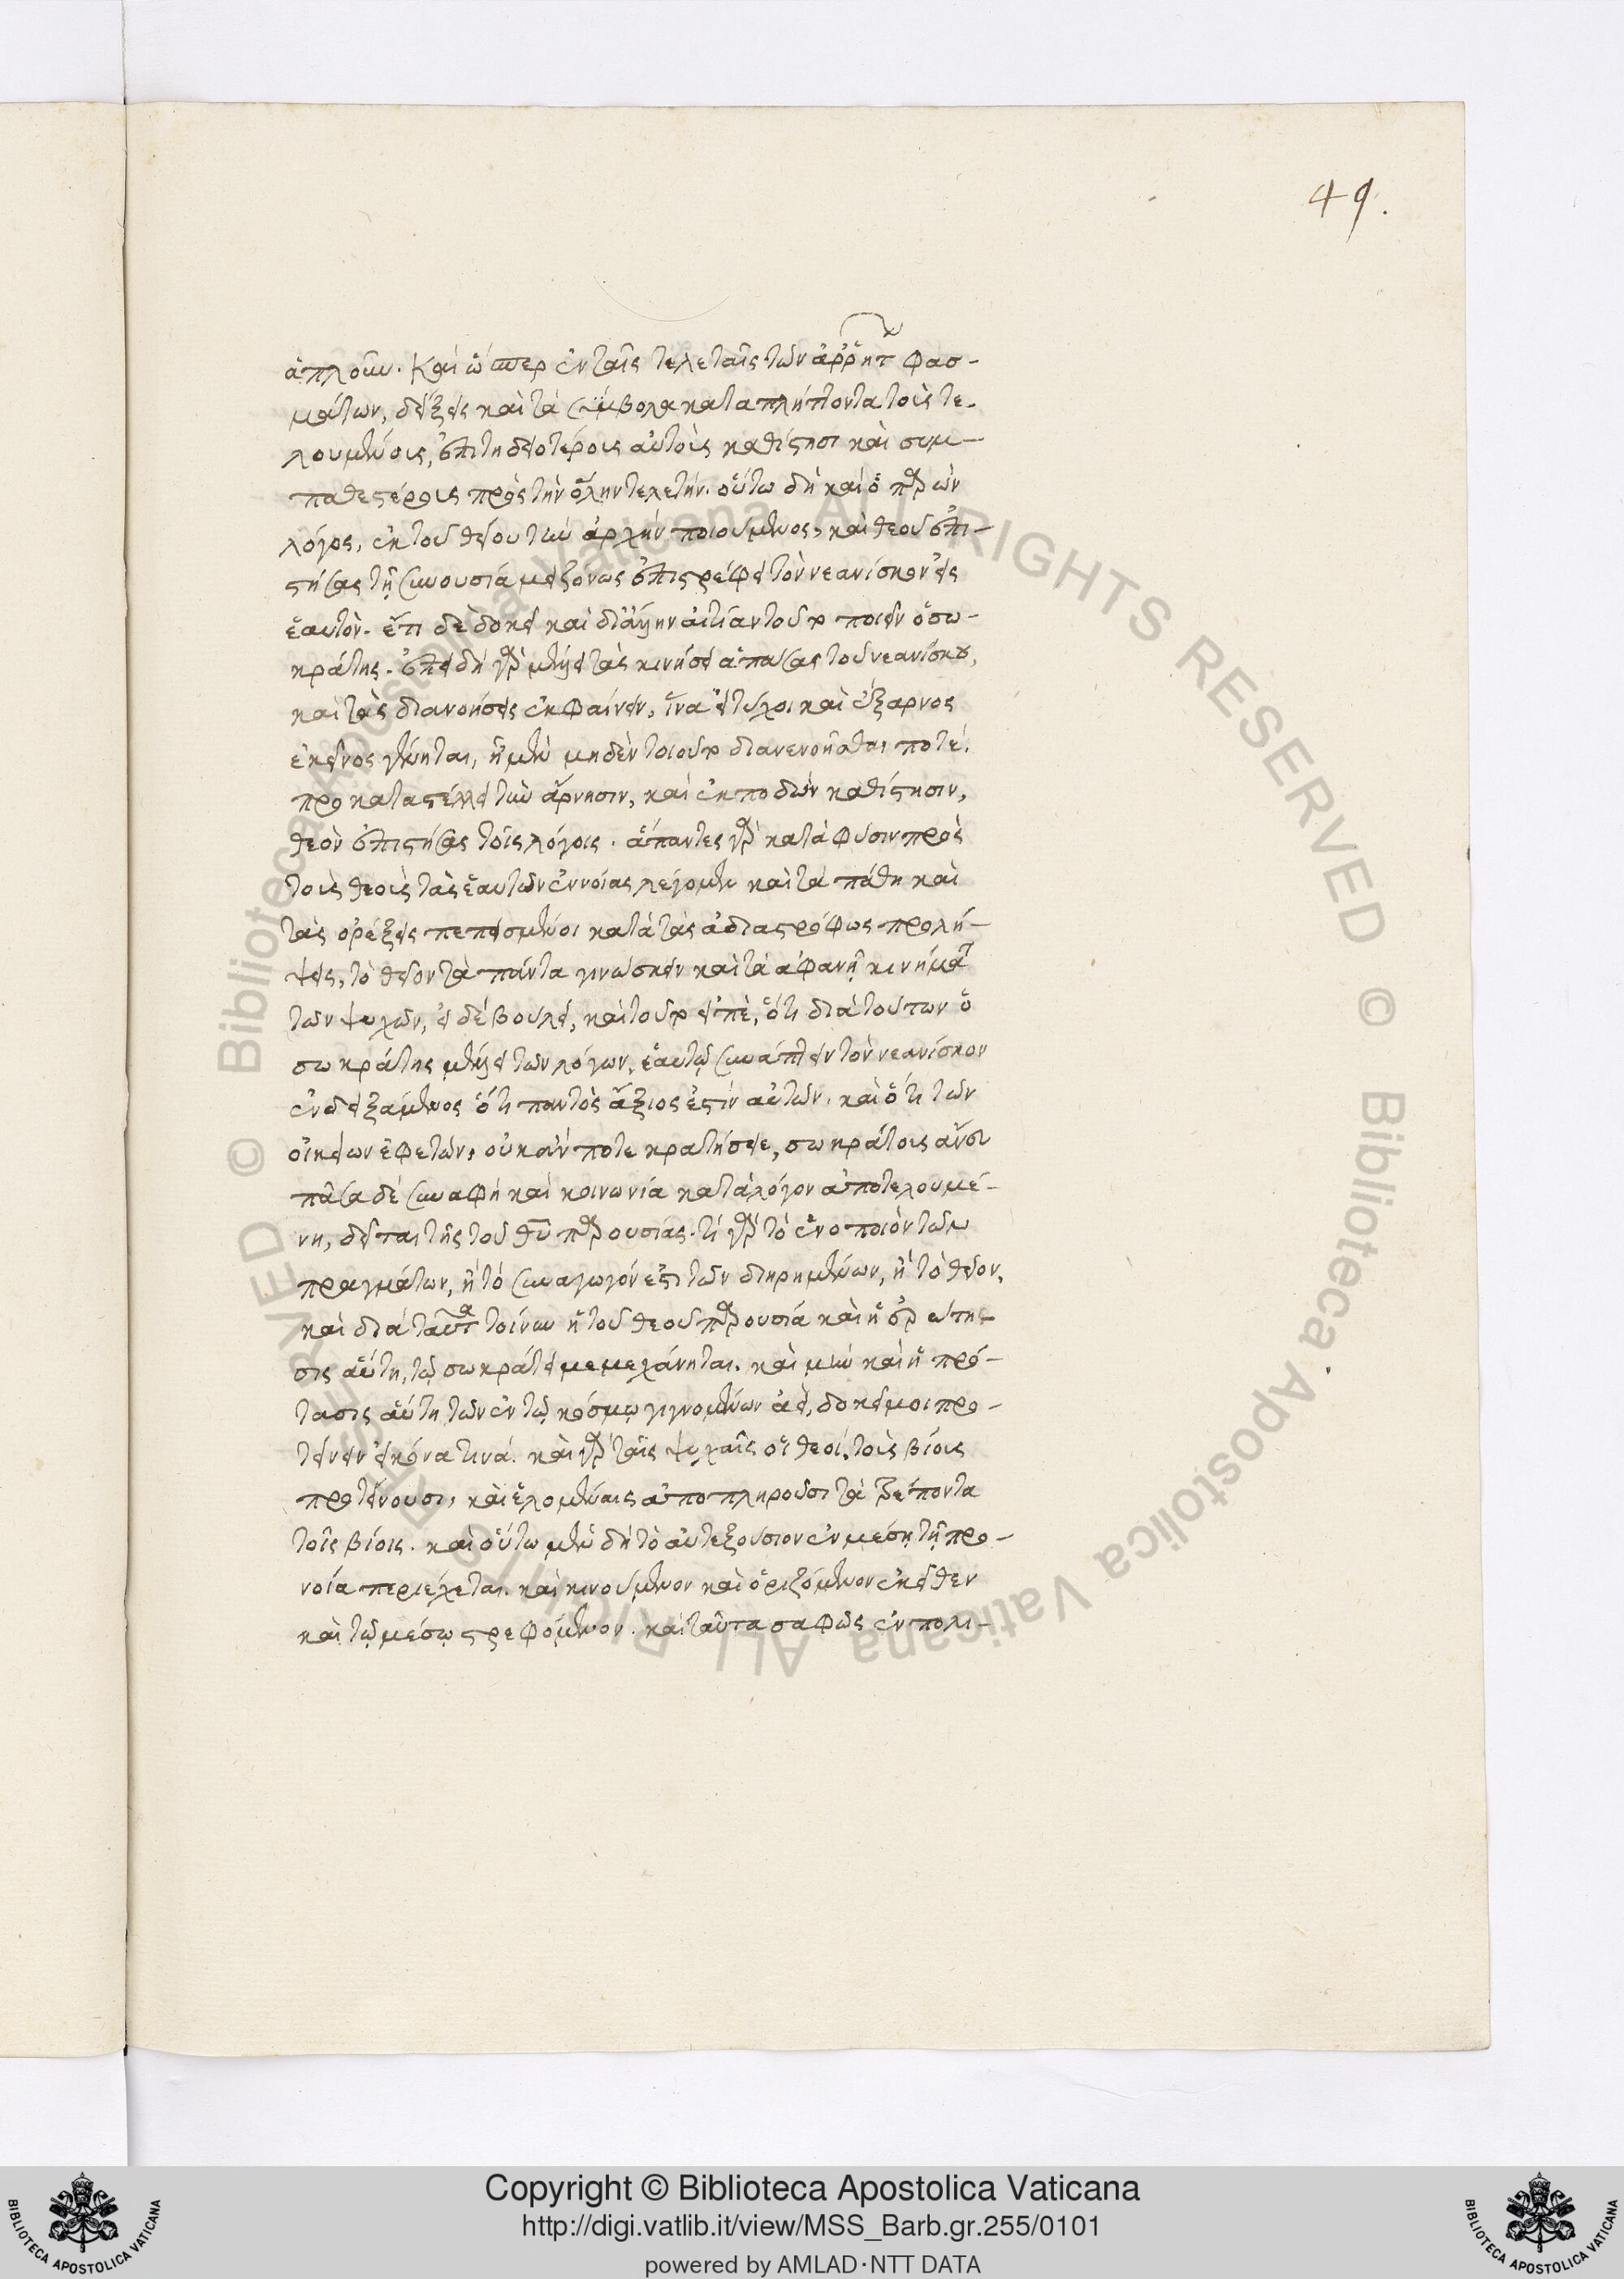 49.
ἁπλοῦν. Καὶ ὥσπερ ἐν ταῖς τελεταῖς τῶν ἀῤῥήτων φασ-
μάτων, δείξεις καὶ τὰ σύμβολα καταπλήττοντα τοὺς τε-
λουμένους, ἐπιτηδειοτέρους αὐτοὺς καθίστησι καὶ συμ-
παθεστέρους πρὸς τὴν ὅλην τελετήν. οὕτω δὴ καὶ ὁ παρὼν
λόγος, ἐκ τοῦ θείου τὴν ἀρχὴν ποιούμενος, καὶ θεοῦ ἐπι-
στήσας τῇ συνουσίᾳ μειζόνως ἐπιστρέφει τὸν νεανίσκον εἰς
ἑαυτὸν. ἔτι δὲ δοκεῖ καὶ δι' ἄλλην αἰτίαν τοῦτο ποιεῖν ὁ σω-
κράτης. ἐπειδὴ γὰρ μέλλει τὰς κινήσει ἁπάσας τοῦ νεανίσκου,
καὶ τὰς διανοήσεις ἐκφαίνειν, ἵνα εἰ τύχοι καὶ ἔξαρνος
ἐκεῖνος γένηται, ἦ μὲν μηδὲν τοιοῦτο διανενοῆσθαι ποτέ.
προκαταστέλλει τὴν ἄρνησιν, καὶ ἐκποδὼν καθίστησιν,
θεὸν ἐπιστήσας τοῖς λόγοις. ἅπαντες γὰρ κατὰ φύσιν πρὸς
τοὺς θεοὺς τὰς ἑαυτῶν ἐννοίας λέγομεν καὶ τὰ πάθη καὶ
τὰς ὀρέξεις πεπεισμένοι κατὰ τὰς ἀδιαστρόφως προλή-
ψεις, τὸ θεῖον τὰ πάντα γινώσκειν καὶ τὰ ἀφανῆ κινήματα
τῶν ψυχῶν, εἰ δὲ βούλει, καὶ τοῦτο εἰπὲ, ὅτι διὰ τούτων ὁ
σωκράτης μέλλει τῶν λόγων, ἑαυτῷ συνάπτειν τὸν νεανίσκον
ἐνδειξάμενος ὅτι παντὸς ἄξιος ἐστὶν αὐτῶν. καὶ ὅτι τῶν
οἰκείων ἐφετῶν, οὐκ ἄν ποτε κρατήσειε, σωκράτους ἄνευ
πᾶσα δὲ συναφὴ καὶ κοινωνία κατὰ λόγον ἀποτελουμέ-
νη, δεῖται τῆς τοῦ θ̅υ̅ παρουσίας. τί γὰρ τὸ ἑνοποιὸν τῶν
πραγμάτων, ἢ τὸ συναγωγόν ἐστι τῶν διηρημένων, ἢ τὸ θεῖον.
καὶ διὰ ταῦτα τοίνυν ἡ τοῦ θεοῦ παρουσία καὶ ἡ ἐρώτη-
σις αὕτη, τῷ σωκράτει μεμεχάνηται. καὶ μὴν καὶ ἡ πρό-
τασις αὕτη τῶν ἐν τῷ κόσμῳ γιγνομένων ἀεὶ, δοκεῖ μοι προ-
τείνειν εἰκόνα τινά. καὶ γὰρ ταῖς ψυχαῖς οἱ θεοί, τοὺς βίους
προτείνουσι, καὶ ἑλομέναις ἀποπληροῦσι τὰ πρέποντα
τοῖς βίοις. καὶ οὕτω μὲν δὴ τὸ αὐτεξούσιον ἐν μέσῃ τῇ προ-
νοίᾳ περιέχεται. καὶ κινούμενον καὶ ὁριζόμενον ἐκεῖθεν
καὶ τῷ μέσῳ στρεφόμενον. καὶ ταῦτα σαφῶς ἐν πολι-
Copyright © Biblioteca Apostolica Vaticana
http://digi.vatlib.it/view/MSS_Barb.gr.255/0101
powered by AMLAD·NTT DATA
BIBLIOTECA APOSTOLICA VATICANA
BIBLIOTECA APOSTOLICA VATICANA
© Biblioteca Apostolica Vaticana ALL RIGHTS RESERVED © Biblioteca Apostolica Vaticana ALL RIGHTS RESERVED